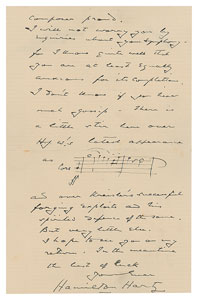 Composer friend.
I will not worry you by
inquiries about your Symphony
for I know quite well that
you are at least equally
anxious for its completion
I don't know if you hear
much gossip. There is
a little stir here over
latest appearance
as
Cor
ff
and over Kreisler's successful
forging exploits and his
spirited defence of the same.
But very little else.
I hope to see you on my
return. In the meantime
the best of luck
Yours ever
Hamilton Harty